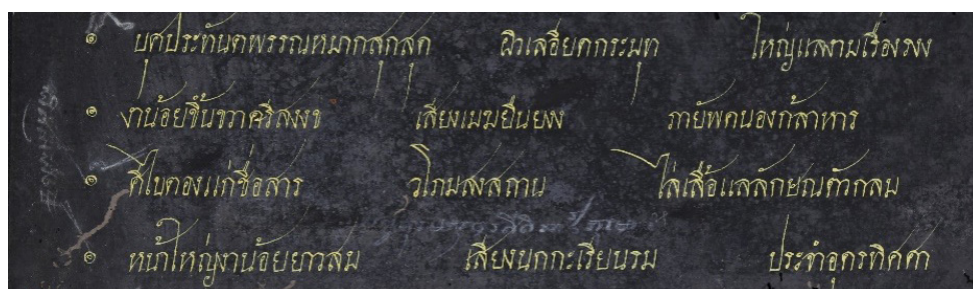 ๏ บุศประทันตพรรณหมากสุกสุก ผิวเลอียดกระมุท ใหญ่แลงามเรื่องรงง
๏ งาน้อยขึ้นขวาคริสงงข เสียงเมฆยืนยงง กายัพคนองก้ลาหาร
๏ ศีใบตองแก่ชื่อสาร วโภมสงสถาน ไล่เสื้อแลลักษณตัวกลม
๏ หน้าใหญ่งาน้อยยาวสม เสียงนกกะเรียนรม ประจำอุดรทิศศา